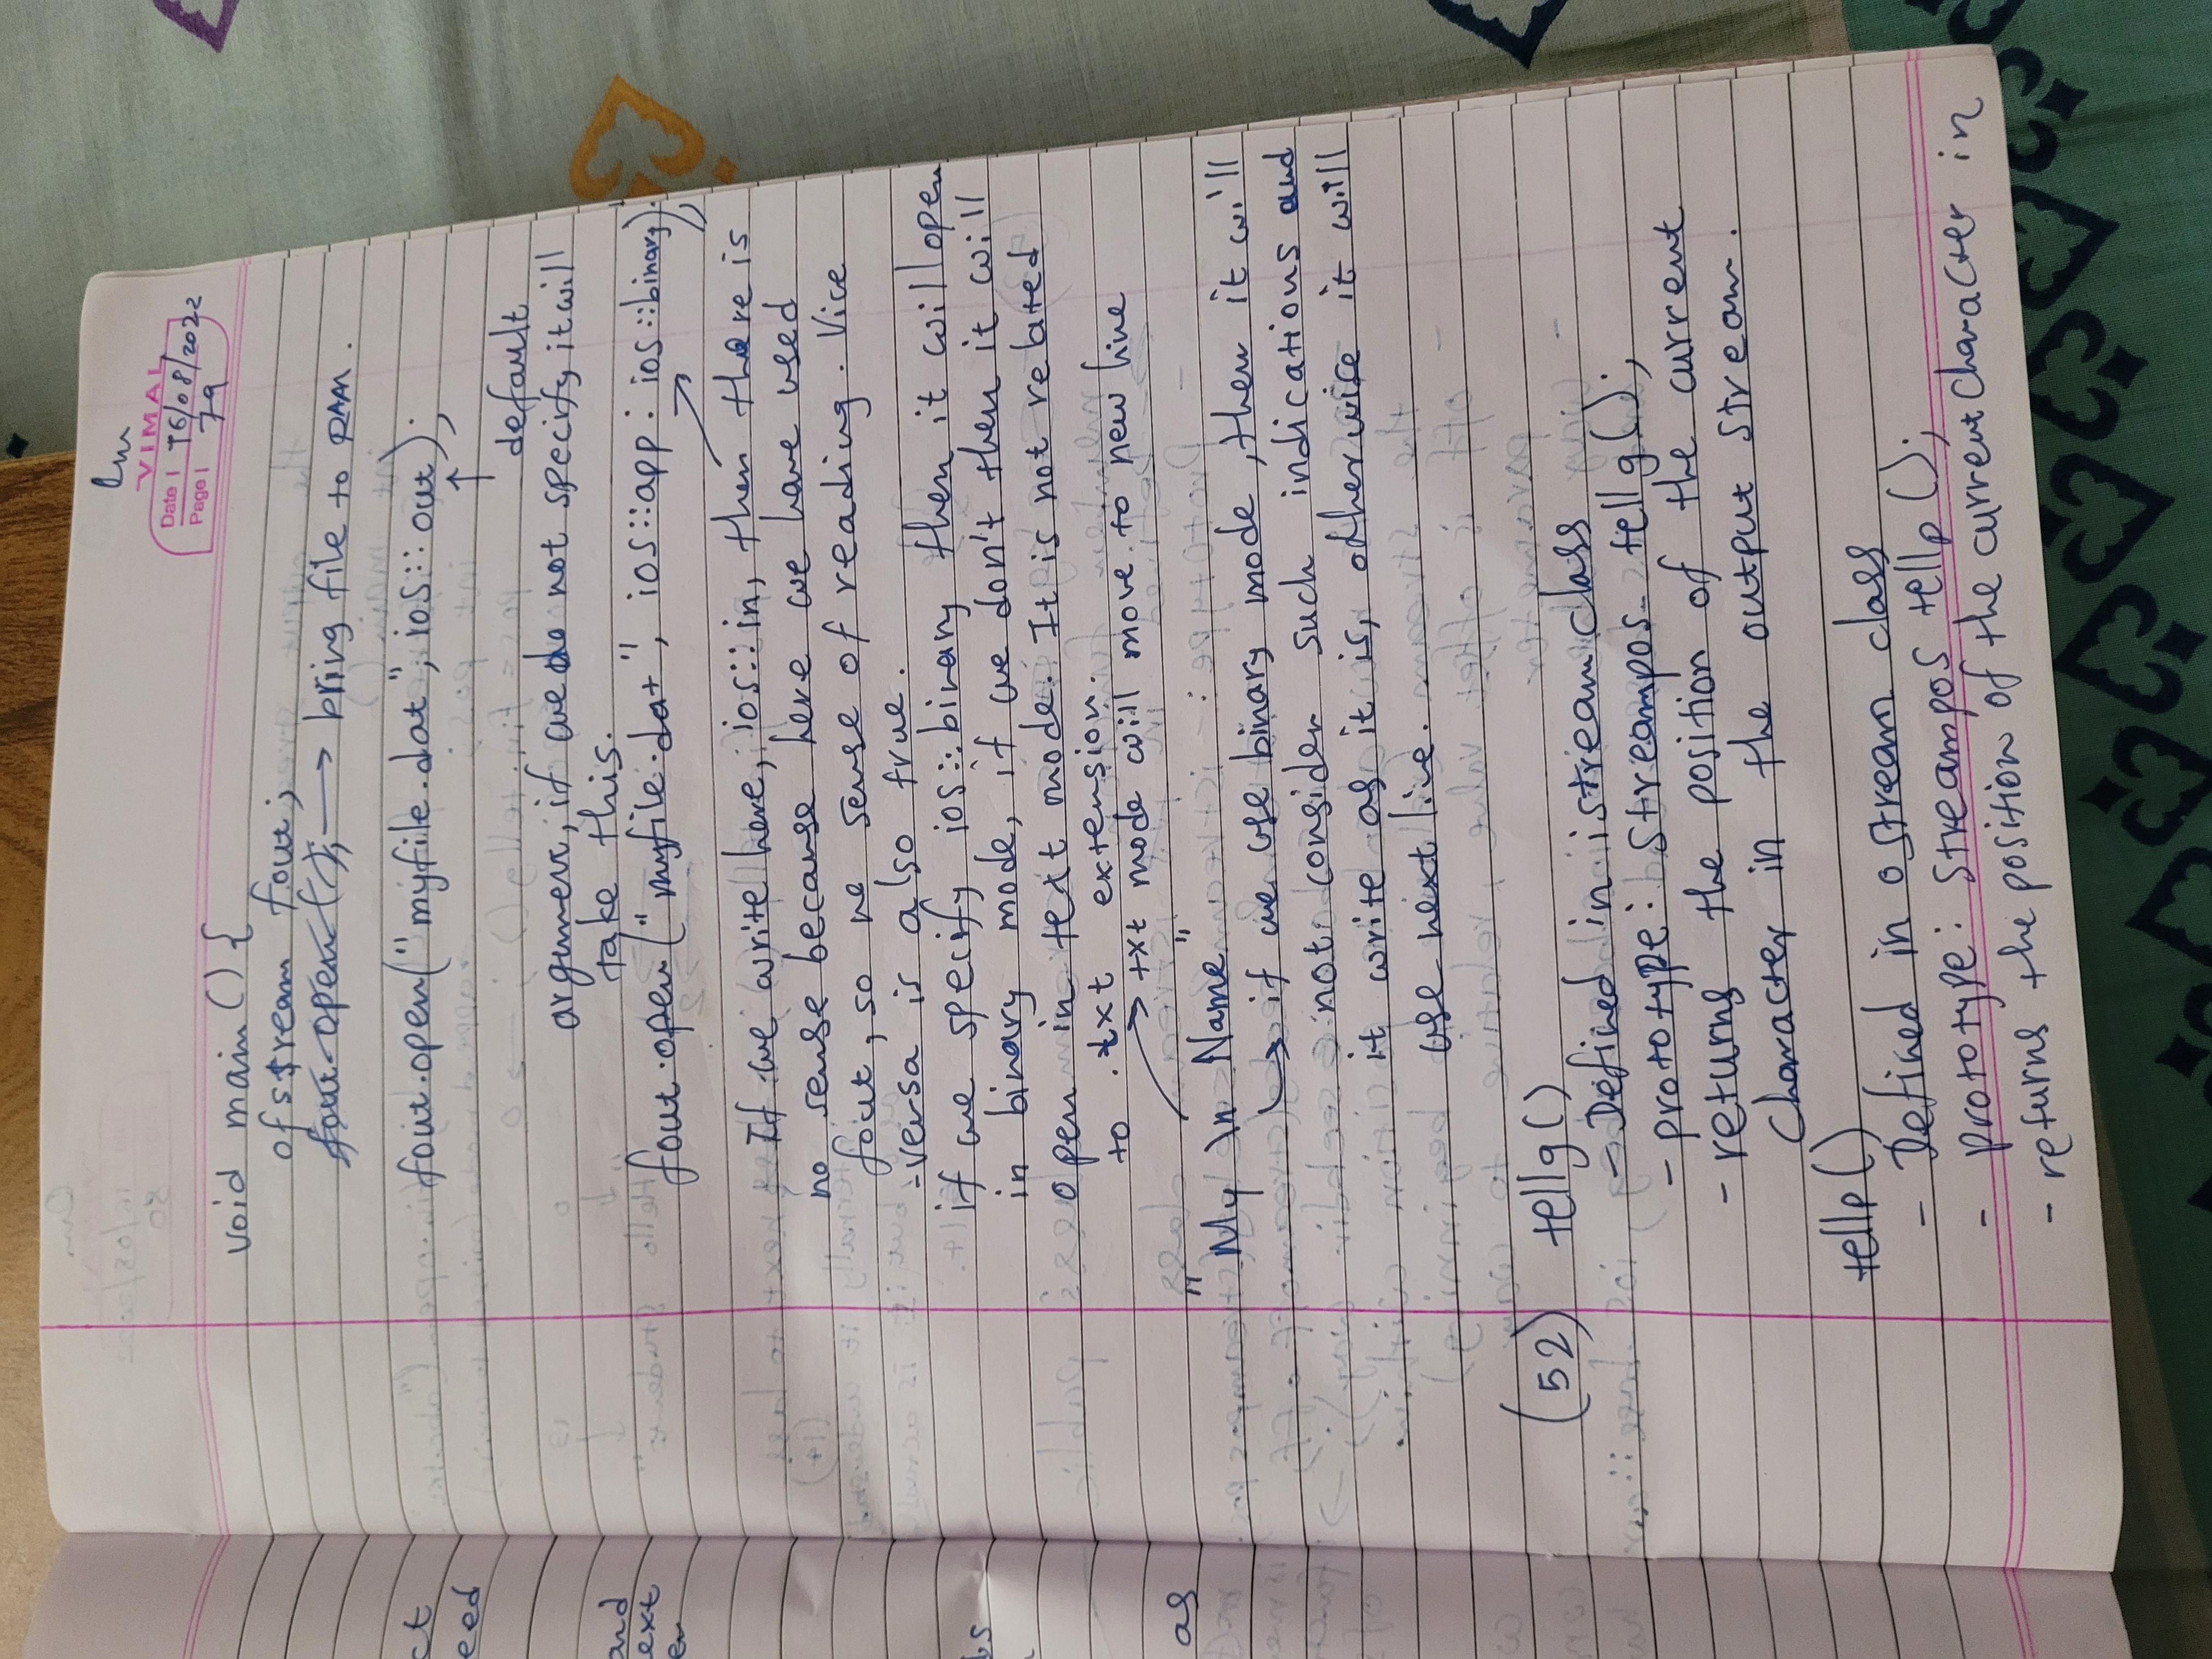 Om
VIMAL
Date | 16/08/2022
Page | 79
void main() {
ofstream fout;
fout.open(); → bring file to RAM.
fout.open("myfile.dat", ios::out);
↑
default
argument, if we do not specify it will
take this.
fout.open("myfile.dat", ios::app : ios::binary);
If we write here, ios::in, then there is
no sense because here we have used
fout, so no sense of reading. Vice
-versa is also true.
if we specify ios::binary then it will open
in binary mode, if we don't then it will
open in text mode. It is not related
to .txt extension.
→ txt mode will move to new line
"My \n Name"
↳ if we use binary mode, then it will
not consider such indications and
it write as it is, otherwise it will
use next line.
(52) tellg()
- Defined in istream class
- prototype: streampos tellg();
- returns the position of the current
character in the output stream.
tellp()
- Defined in ostream class
- prototype: streampos tellp();
- returns the position of the current character in
ct
eed
and
ext
as